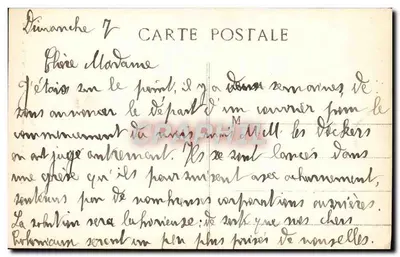 Dimanche 7
CARTE POSTALE
Chère Madame
J'étais sur le point, il y a deux semaines, de
vous annoncer le départ d'un courrier pour le
commencement du mois mais M.M. les Dockers
en ont jugé autrement. Ils se sont lancés dans
une grève qu'ils poursuivent avec acharnement,
soutenus par de nombreuses corporations ouvrières.
La solution sera laborieuse; de sorte que nos chers
coloniaux seront un peu plus privés de nouvelles.